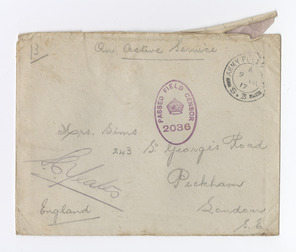 On Active Service
ARMY
17
S. 3
PASSED FIELD CENSOR
2036
Mrs. Sims
243 St. George's Road
Peckham
London
S. E.
England